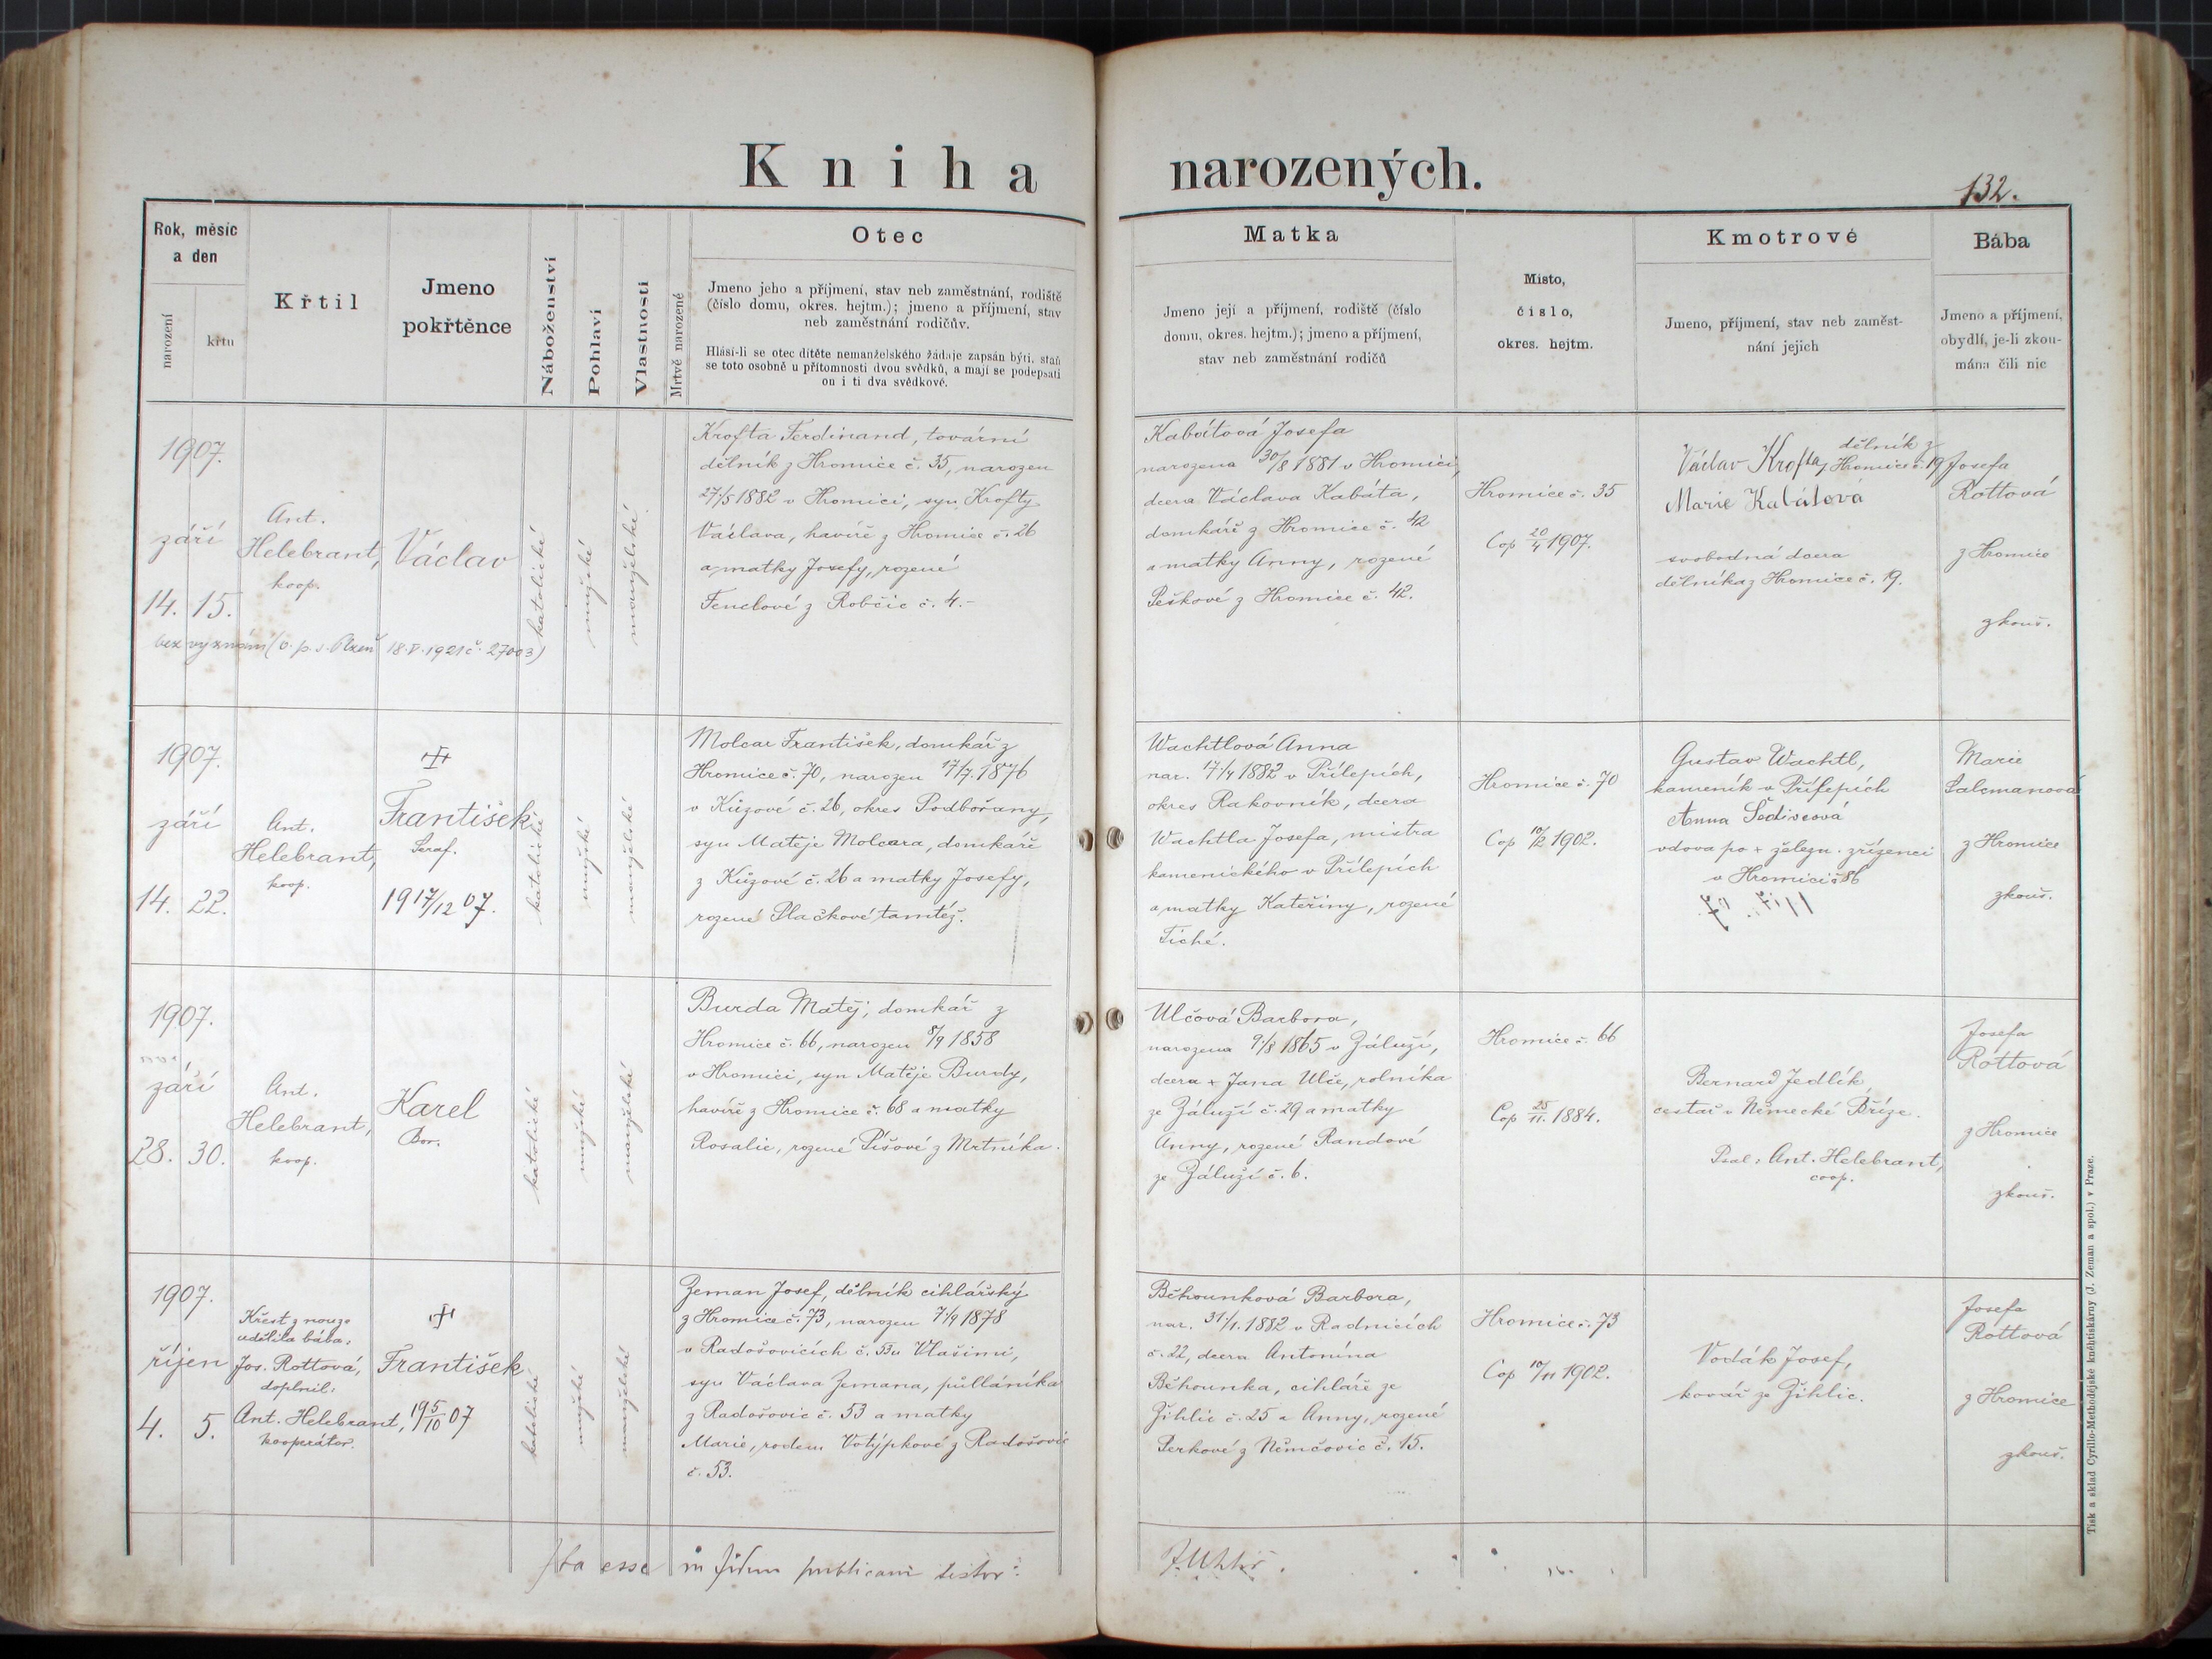 Kniha narozených.
132.
Rok, měsíc
a den
narození
křtu
Křtil
Jmeno
pokřtěnce
Náboženství
Pohlaví
Vlastnosti
Mrtvě narozené
Otec
Jmeno jeho a příjmení, stav neb zaměstnání, rodiště
(číslo domu, okres. hejtm.); jmeno a příjmení, stav
neb zaměstnání rodičův.
Hlásí-li se otec dítěte nemanželského žádaje zapsán býti, staň
se toto osobně u přítomnosti dvou svědků, a mají se podepsati
on i ti dva svědkové.
Matka
Jmeno její a příjmení, rodiště (číslo
domu, okres. hejtm.); jmeno a příjmení,
stav neb zaměstnání rodičů
Místo,
číslo,
okres. hejtm.
Kmotrové
Jmeno, příjmení, stav neb zaměst-
nání jejich
Bába
Jmeno a příjmení,
obydlí, je-li zkou-
mána čili nic
1907.
září
14. 15.
Ant.
Helebrant,
koop.
Václav
bez vyznání (o. p. s. Plzeň 18.V.1921 č. 27003)
katolické
mužské
manželské
Krofta Ferdinand, tovární
dělník z Hromice č. 35, narozen
27/5 1882 v Hromici, syn Krofty
Václava, havíře z Hromice č. 26
a matky Josefy, rozené
Fenclové z Robčic č. 4.-
Kabátová Josefa
narozena 30/8 1881 v Hromici,
dcera Václava Kabáta,
domkáře z Hromice č. 42
a matky Anny, rozené
Peškové z Hromice č. 42.
Hromice č. 35
Cop 20/4 1907.
Václav Krofta, dělník z
Hromice č. 19
Marie Kabátová
svobodná dcera
dělníka z Hromice č. 19.
Josefa
Rottová
z Hromice
zkouš.
1907.
září
14. 22.
Ant.
Helebrant,
koop.
František
Seraf.
19 17/12 07.
katolické
mužské
manželské
Molcar František, domkář z
Hromice č. 70, narozen 17/7. 1876
v Kůzové č. 26, okres Podbořany,
syn Matěje Molcara, domkáře
z Kůzové č. 26 a matky Josefy,
rozené Plačkové tamtéž.
Wachtlová Anna
nar. 17/4 1882 v Přílepích,
okres Rakovník, dcera
Wachtla Josefa, mistra
kamenického v Přílepích
a matky Kateřiny, rozené
Tiché.
Hromice č. 70
Cop 10/2 1902.
Gustav Wachtl,
kameník v Přílepích
Anna Šedivcová
vdova po + železn. zřízenci
v Hromici č 86
Marie
Salcmanová
z Hromice
zkouš.
1907.
září
28. 30.
Ant.
Helebrant,
koop.
Karel
Bor.
katolické
mužské
manželské
Burda Matěj, domkář z
Hromice č. 66, narozen 8/9 1858
v Hromici, syn Matěje Burdy,
havíře z Hromice č. 68 a matky
Rosalie, rozené Píšové z Mrtníka.
Ulčová Barbora,
narozena 9/8 1865 v Záluží,
dcera + Jana Ulče, rolníka
ze Záluží č. 29 a matky
Anny, rozené Randové
ze Záluží č. 6.
Hromice č. 66
Cop 25/11. 1884.
Bernard Jedlík,
cestář v Německé Bříze.
Psal: Ant. Helebrant,
coop.
Josefa
Rottová
z Hromice
zkouš.
1907.
říjen
4. 5.
Křest z nouze
udělila bába:
Jos. Rottová,
doplnil:
Ant. Helebrant,
kooperátor.
František
19 5/10 07
katolické
mužské
manželské
Zeman Josef, dělník cihlářský
z Hromice č. 73, narozen 7/9 1878
v Radošovicích č. 53 u Vlašimi,
syn Václava Zemana, půlláníka
z Radošovic č. 53 a matky
Marie, rodem Votýpkové z Radošovic
č. 53.
Běhounková Barbora,
nar. 31/1. 1882 v Radnicích
č. 22, dcera Antonína
Běhounka, cihláře ze
Žihlic č. 25 a Anny, rozené
Perkové z Němčovic č. 15.
Hromice č. 73
Cop 10/11 1902.
Vodák Josef,
kovář ze Žihlic.
Josefa
Rottová
z Hromice
zkouš.
Ita esse in fidem publicam testor:
Tisk a sklad Cyrillo-Methodějské knihtiskárny (J. Zeman a spol.) v Praze.